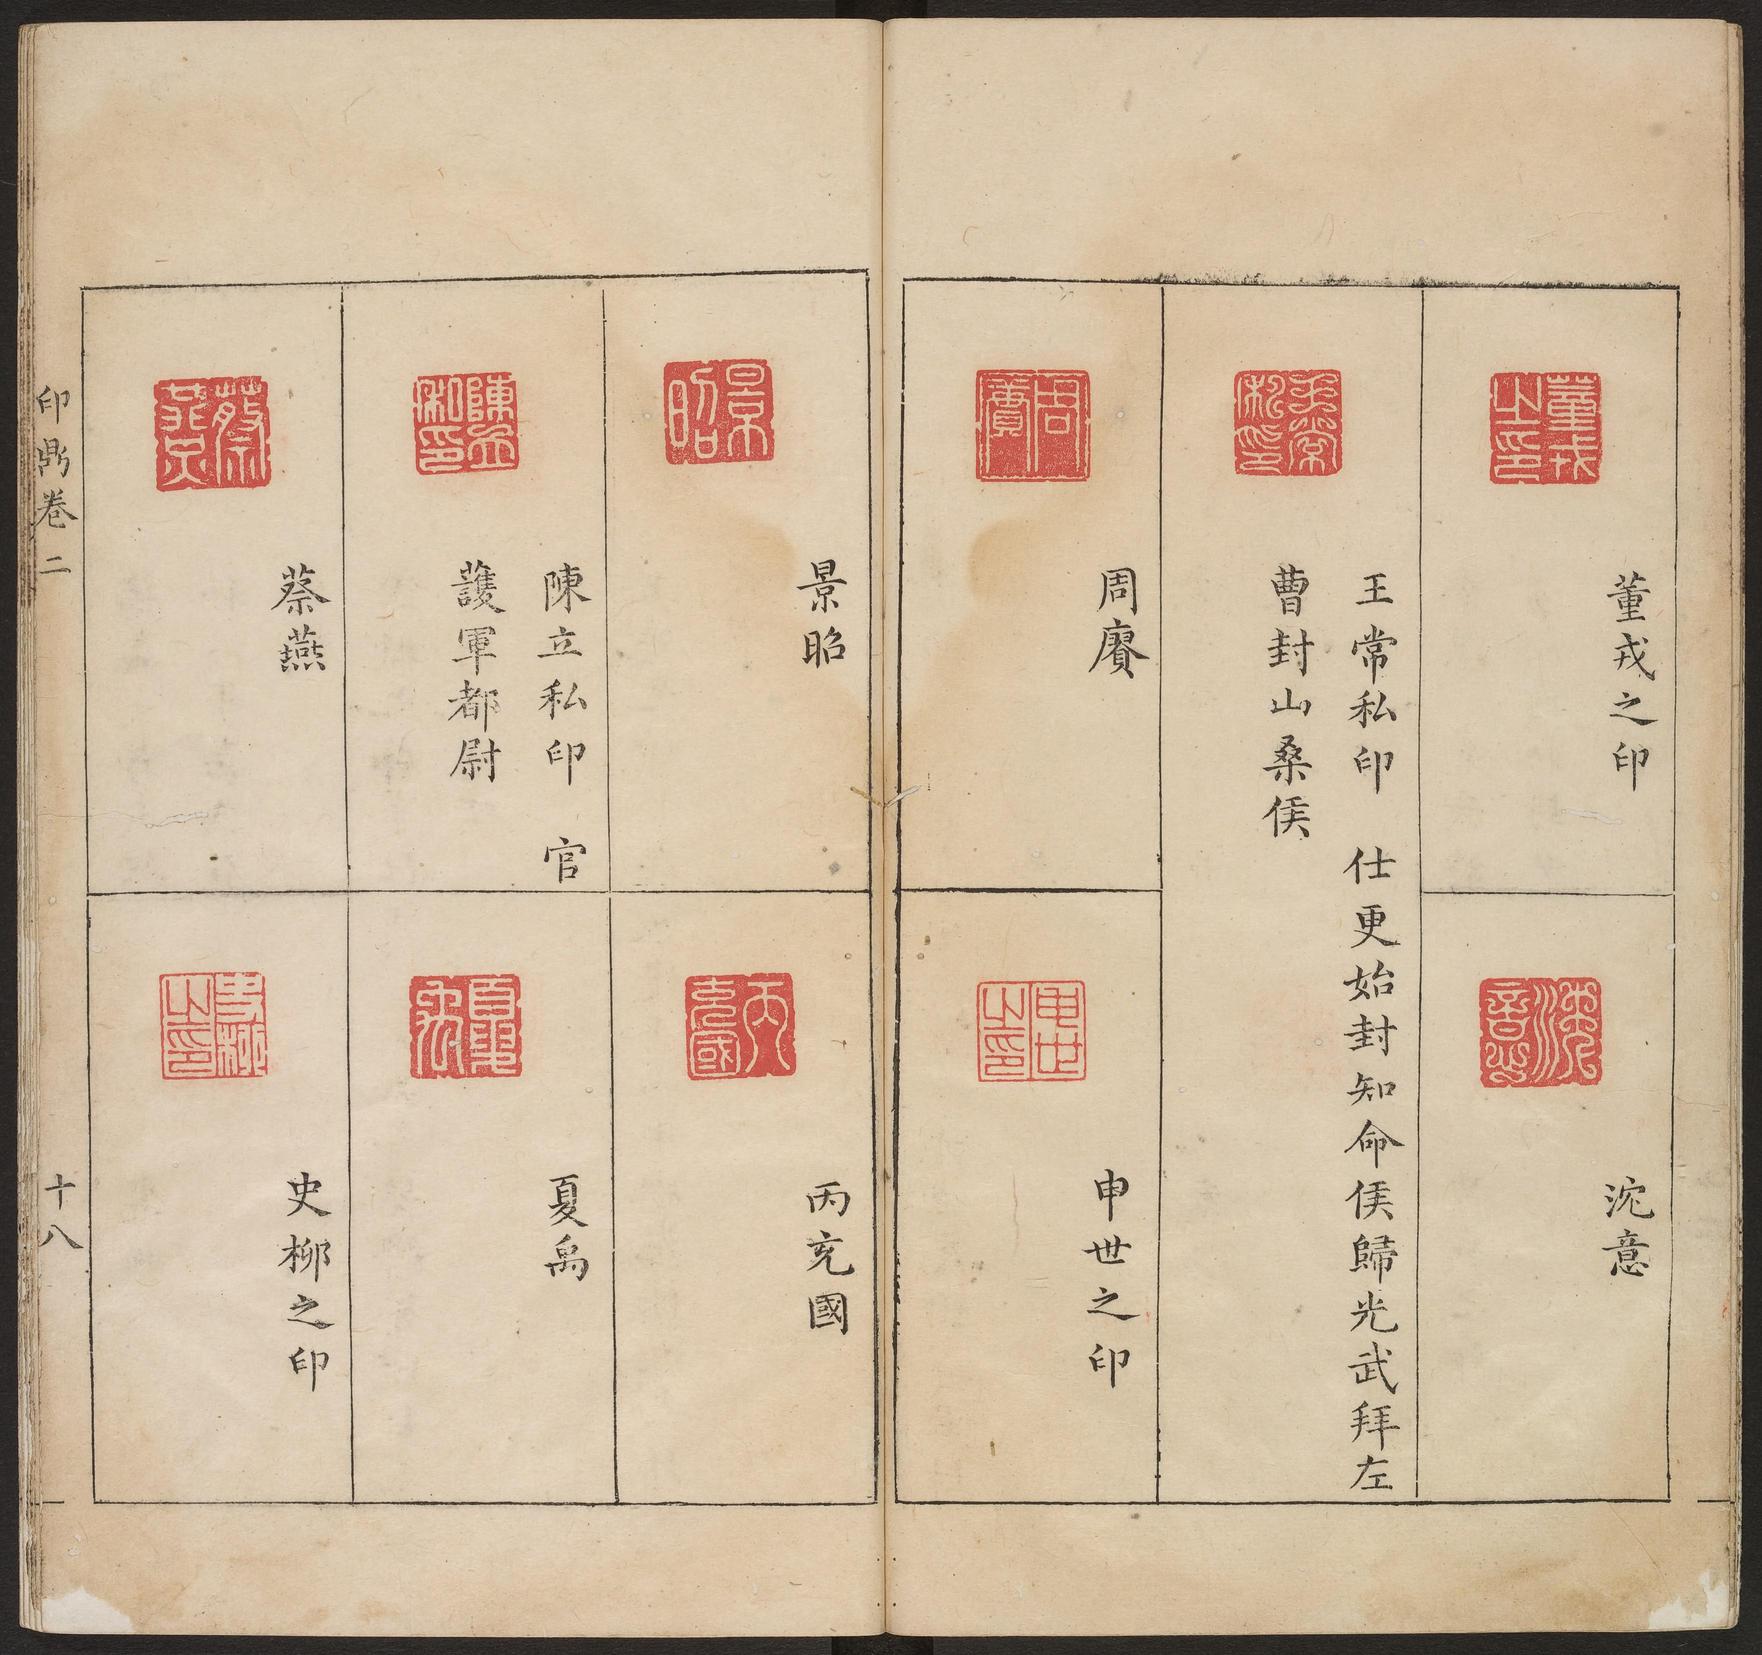 董戎之印
沈意
王常私印 仕更始封知命侯歸光武拜左
曹封山桑侯
周賡
申世之印
景昭
丙充國
陳立私印 官
護軍都尉
夏禹
蔡燕
史柳之印
印鼎卷二
十八